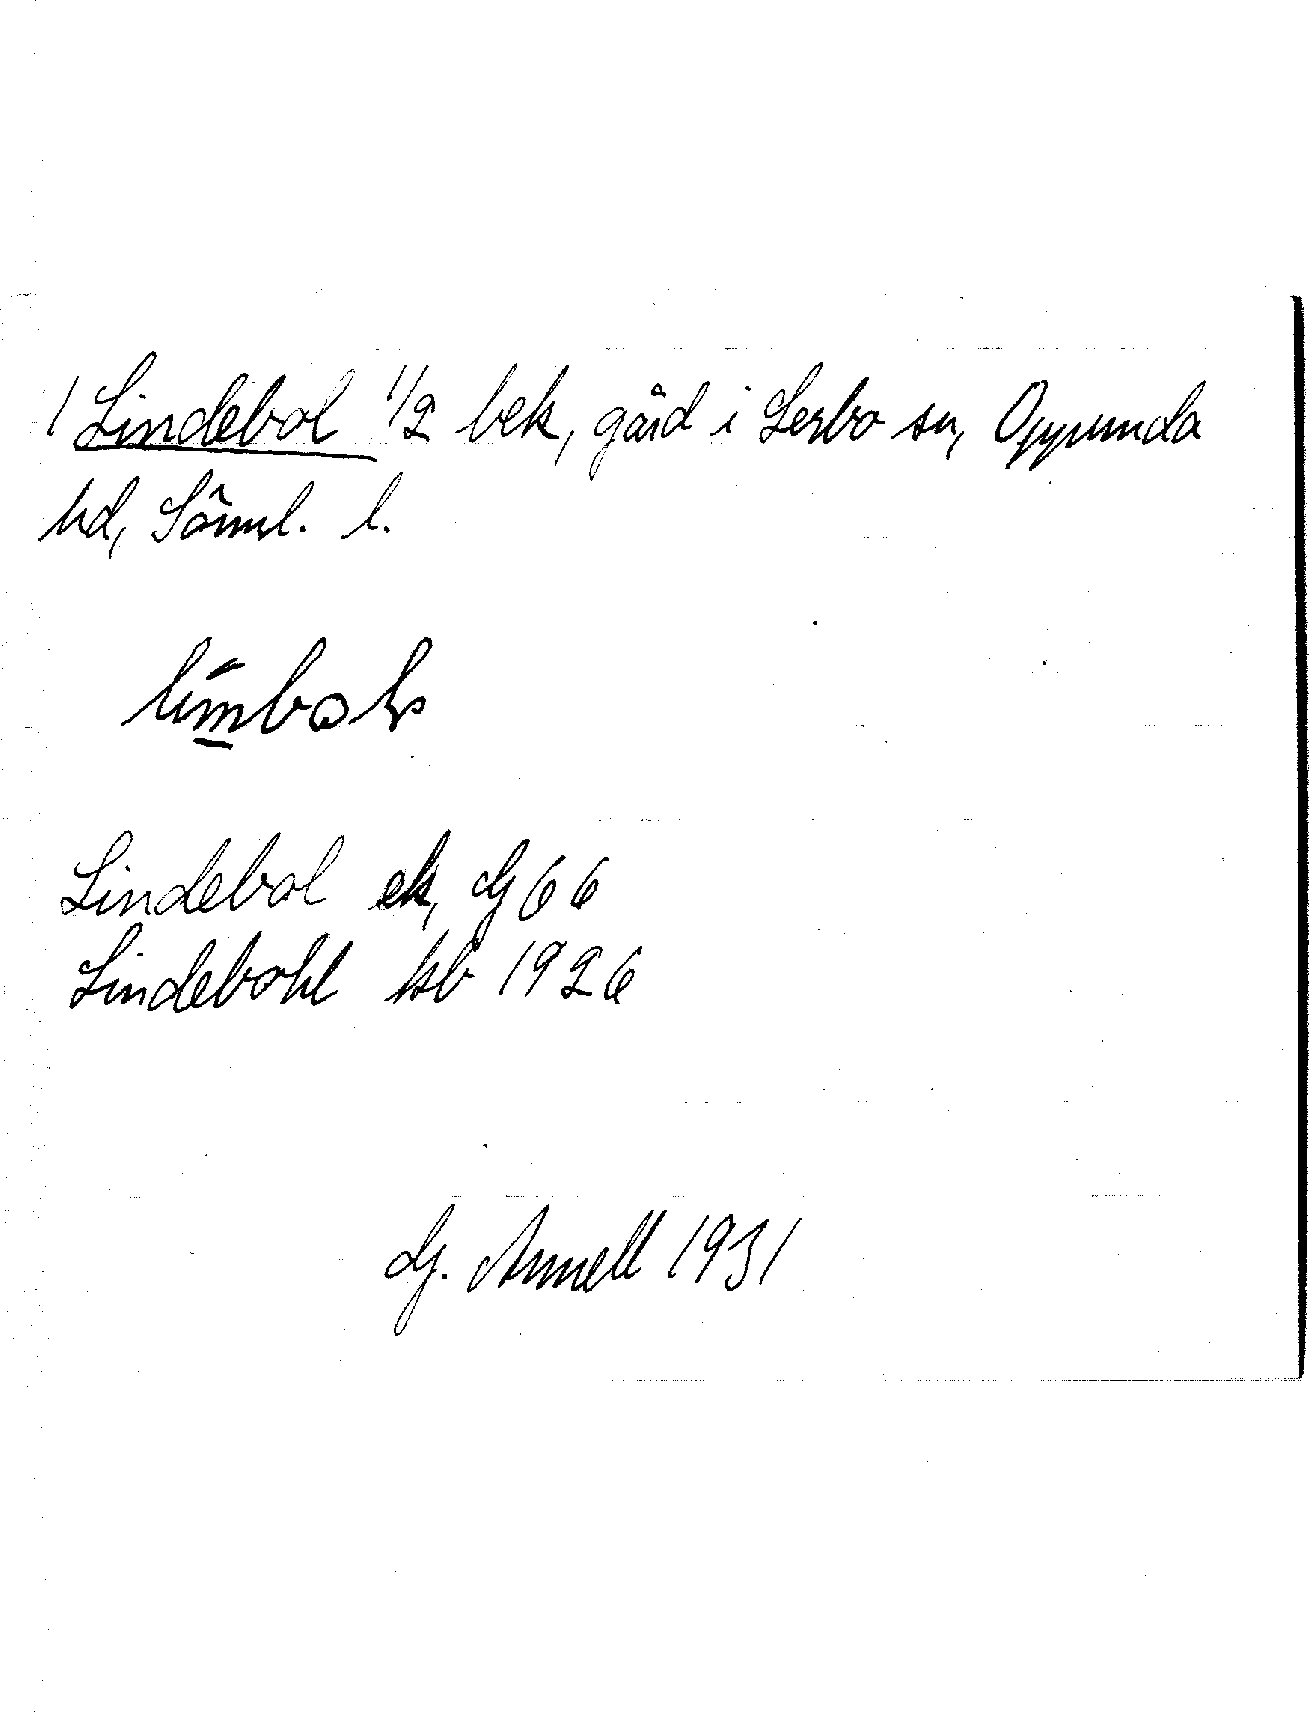 1 Lindebol 1/2 bek, gård i Lerbo sn, Oppunda
hd, Söml. l.
Lindebol ek, G 66
Lindebohl kb 1926
G. Annell 1931